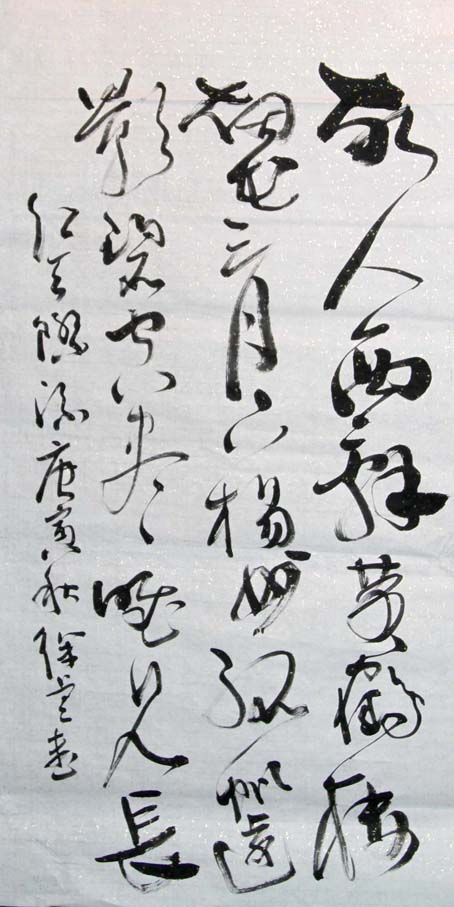 故人西辞黄鹤楼
烟花三月下揚州孤帆遠
影碧空尽唯见長
江天際流庚寅秋徐書